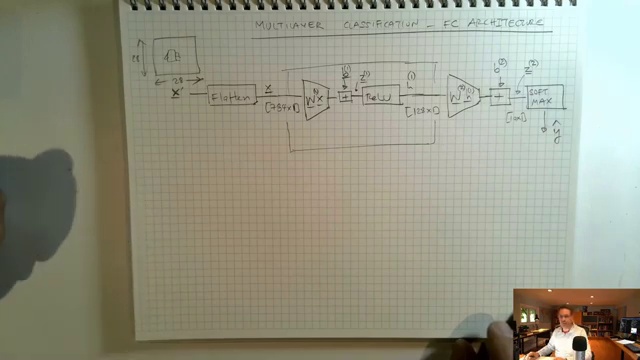 MULTILAYER CLASSIFICATION - FC ARCHITECTURE
28
28
x' Flatten x [784x1] W⁽¹⁾x + b⁽¹⁾ z⁽¹⁾ ReLU h⁽¹⁾ [128x1] W⁽²⁾h⁽¹⁾ + b⁽²⁾ z⁽²⁾ [10x1] SOFT MAX
ŷ